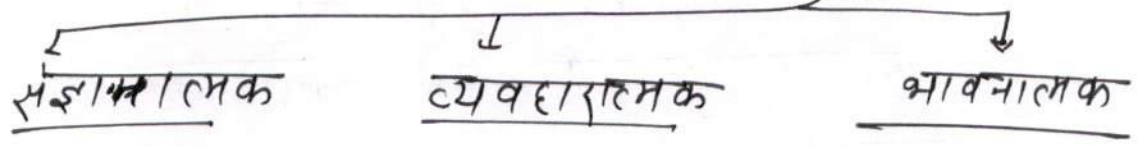 संज्ञानात्मक व्यवहारात्मक भावनात्मक